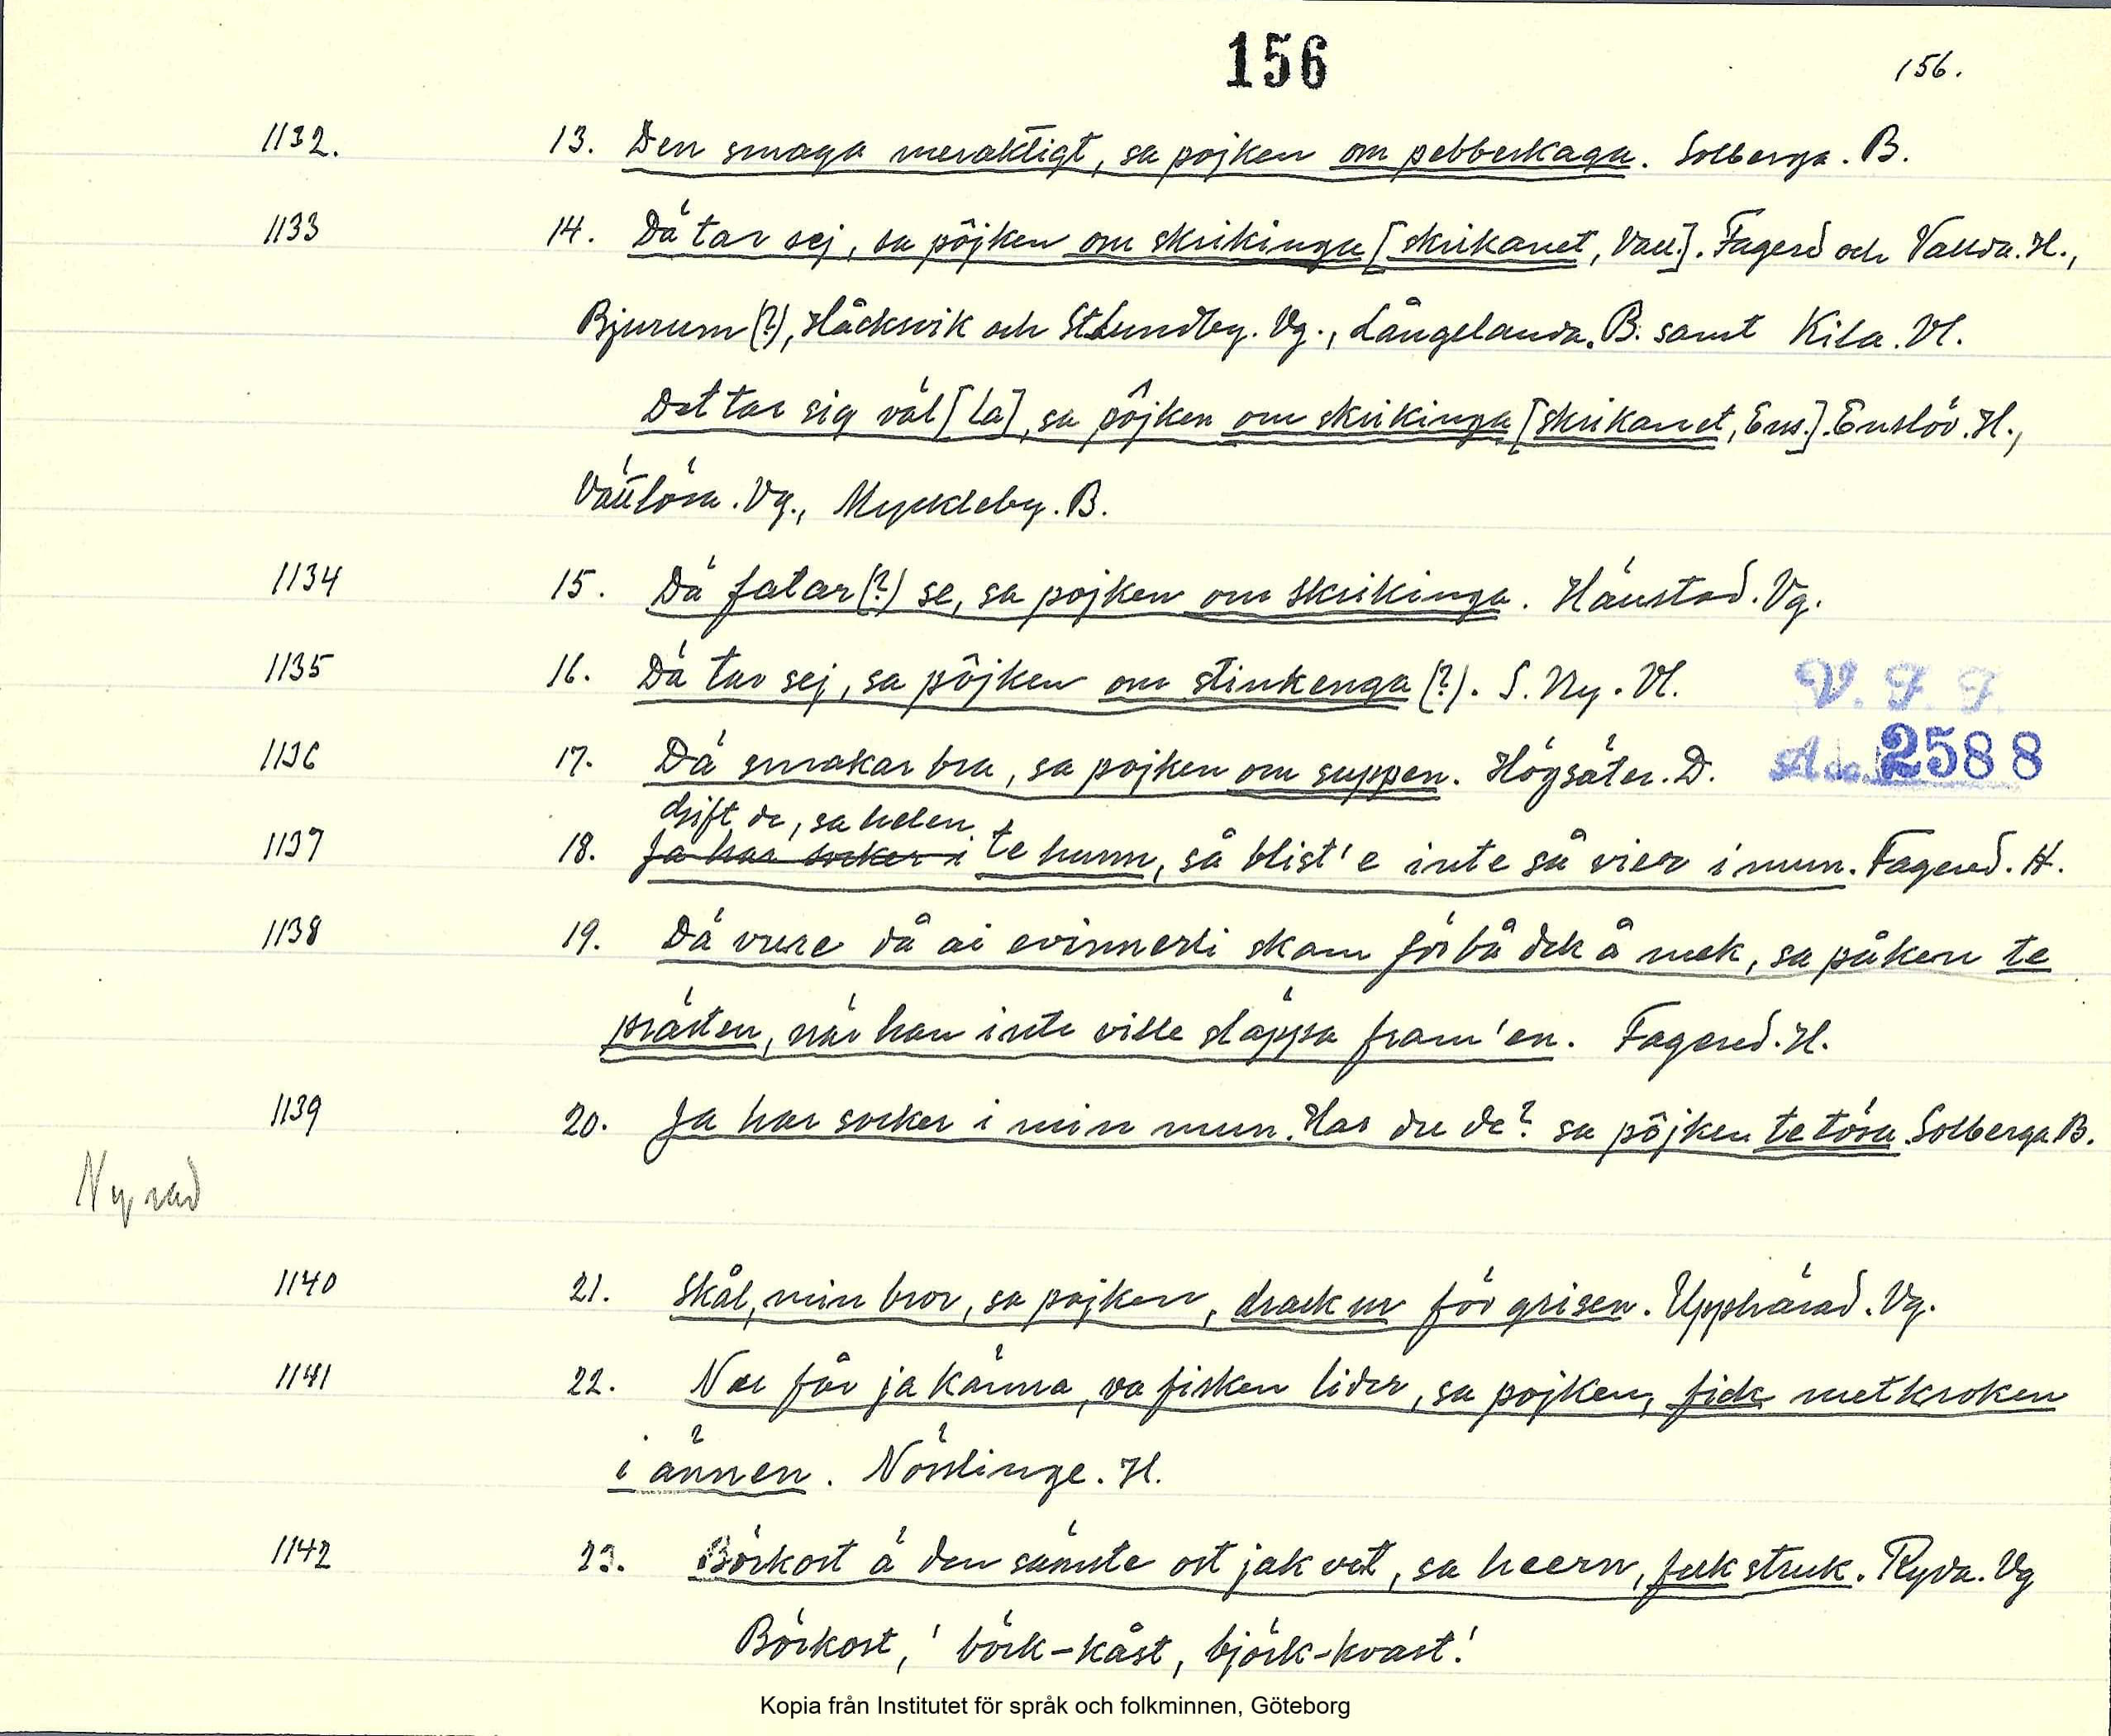 156
156.
1132. 13. Den smaga meraktigt, sa pojken om pebberkaga. Solberga. B.
1133 14. Dä tar sej, sa pôjken om skrikinga [skrikanet, Vall.]. Fagered och Vallda. H.,
Bjurum (?), Håcksvik och St Lundby. Vg., Långelanda. B. samt Kila. Vl.
Det tar sig väl [La], sa pôjken om skrikinga [skrikanet, Ens.]. Enslöv. H.,
Vättlösa. Vg., Myckleby. B.
1134 15. Dä fatar (?) se, sa pojken om skrikinga. Hånstad. Vg.
1135 16. Dä tar sej, sa pôjken om stinkenga (?). S. Ny. Vl.
V. F. F.
1136 17. Dä smakar bra, sa pojken om suppen. Högsäter. D.
Acc. 2588
drift de, sa helen
1137 18. Ja har socker i te hunn, så blist'e inte så vier i mun. Fagered. H.
1138 19. Dä vure då ai evinnerli skam för bå dek å mek, sa påken te
prästen, när han inte ville släppa fram'en. Fagered. H.
1139 20. Ja har socker i min mun. Har du de? sa pôjken te tösa. Solberga B.
Ny rad
1140 21. Skål, min bror, sa pojken, drack ur för grisen. Upphärad. Vg.
1141 22. Nu får ja känna, va fisken lider, sa pojken, fick metkroken
i ännen. Nösslinge. H.
1142 23. Börkost ä den sämste ost jak vet, sa heern, fek struk. Ryda. Vg
Börkost, 'börk-kåst, björk-kvast'.
Kopia från Institutet för språk och folkminnen, Göteborg